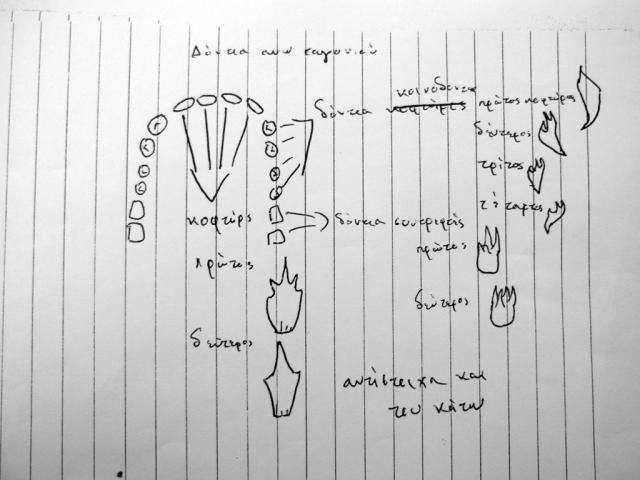 Δόντια ανω σαγονιού
δόντια κοινόδοντα πρώτος κοφτήρς
δεύτερος
τρίτος
τέταρτος
κοφτήρς
δόντια συντριφτής
πρώτος
πρώτος
δεύτερος
δεύτερος
αντίστοιχα και
του κάτω